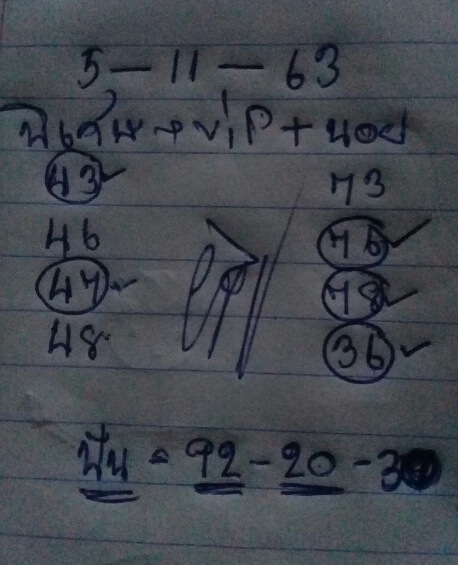 5 - 11 - 63
พิเศษ → VIP + นอย
43 ✓ 73
46 76 ✓
47 ✓ 78 ✓
48 36 ✓
ปืน = 92 - 20 - 30